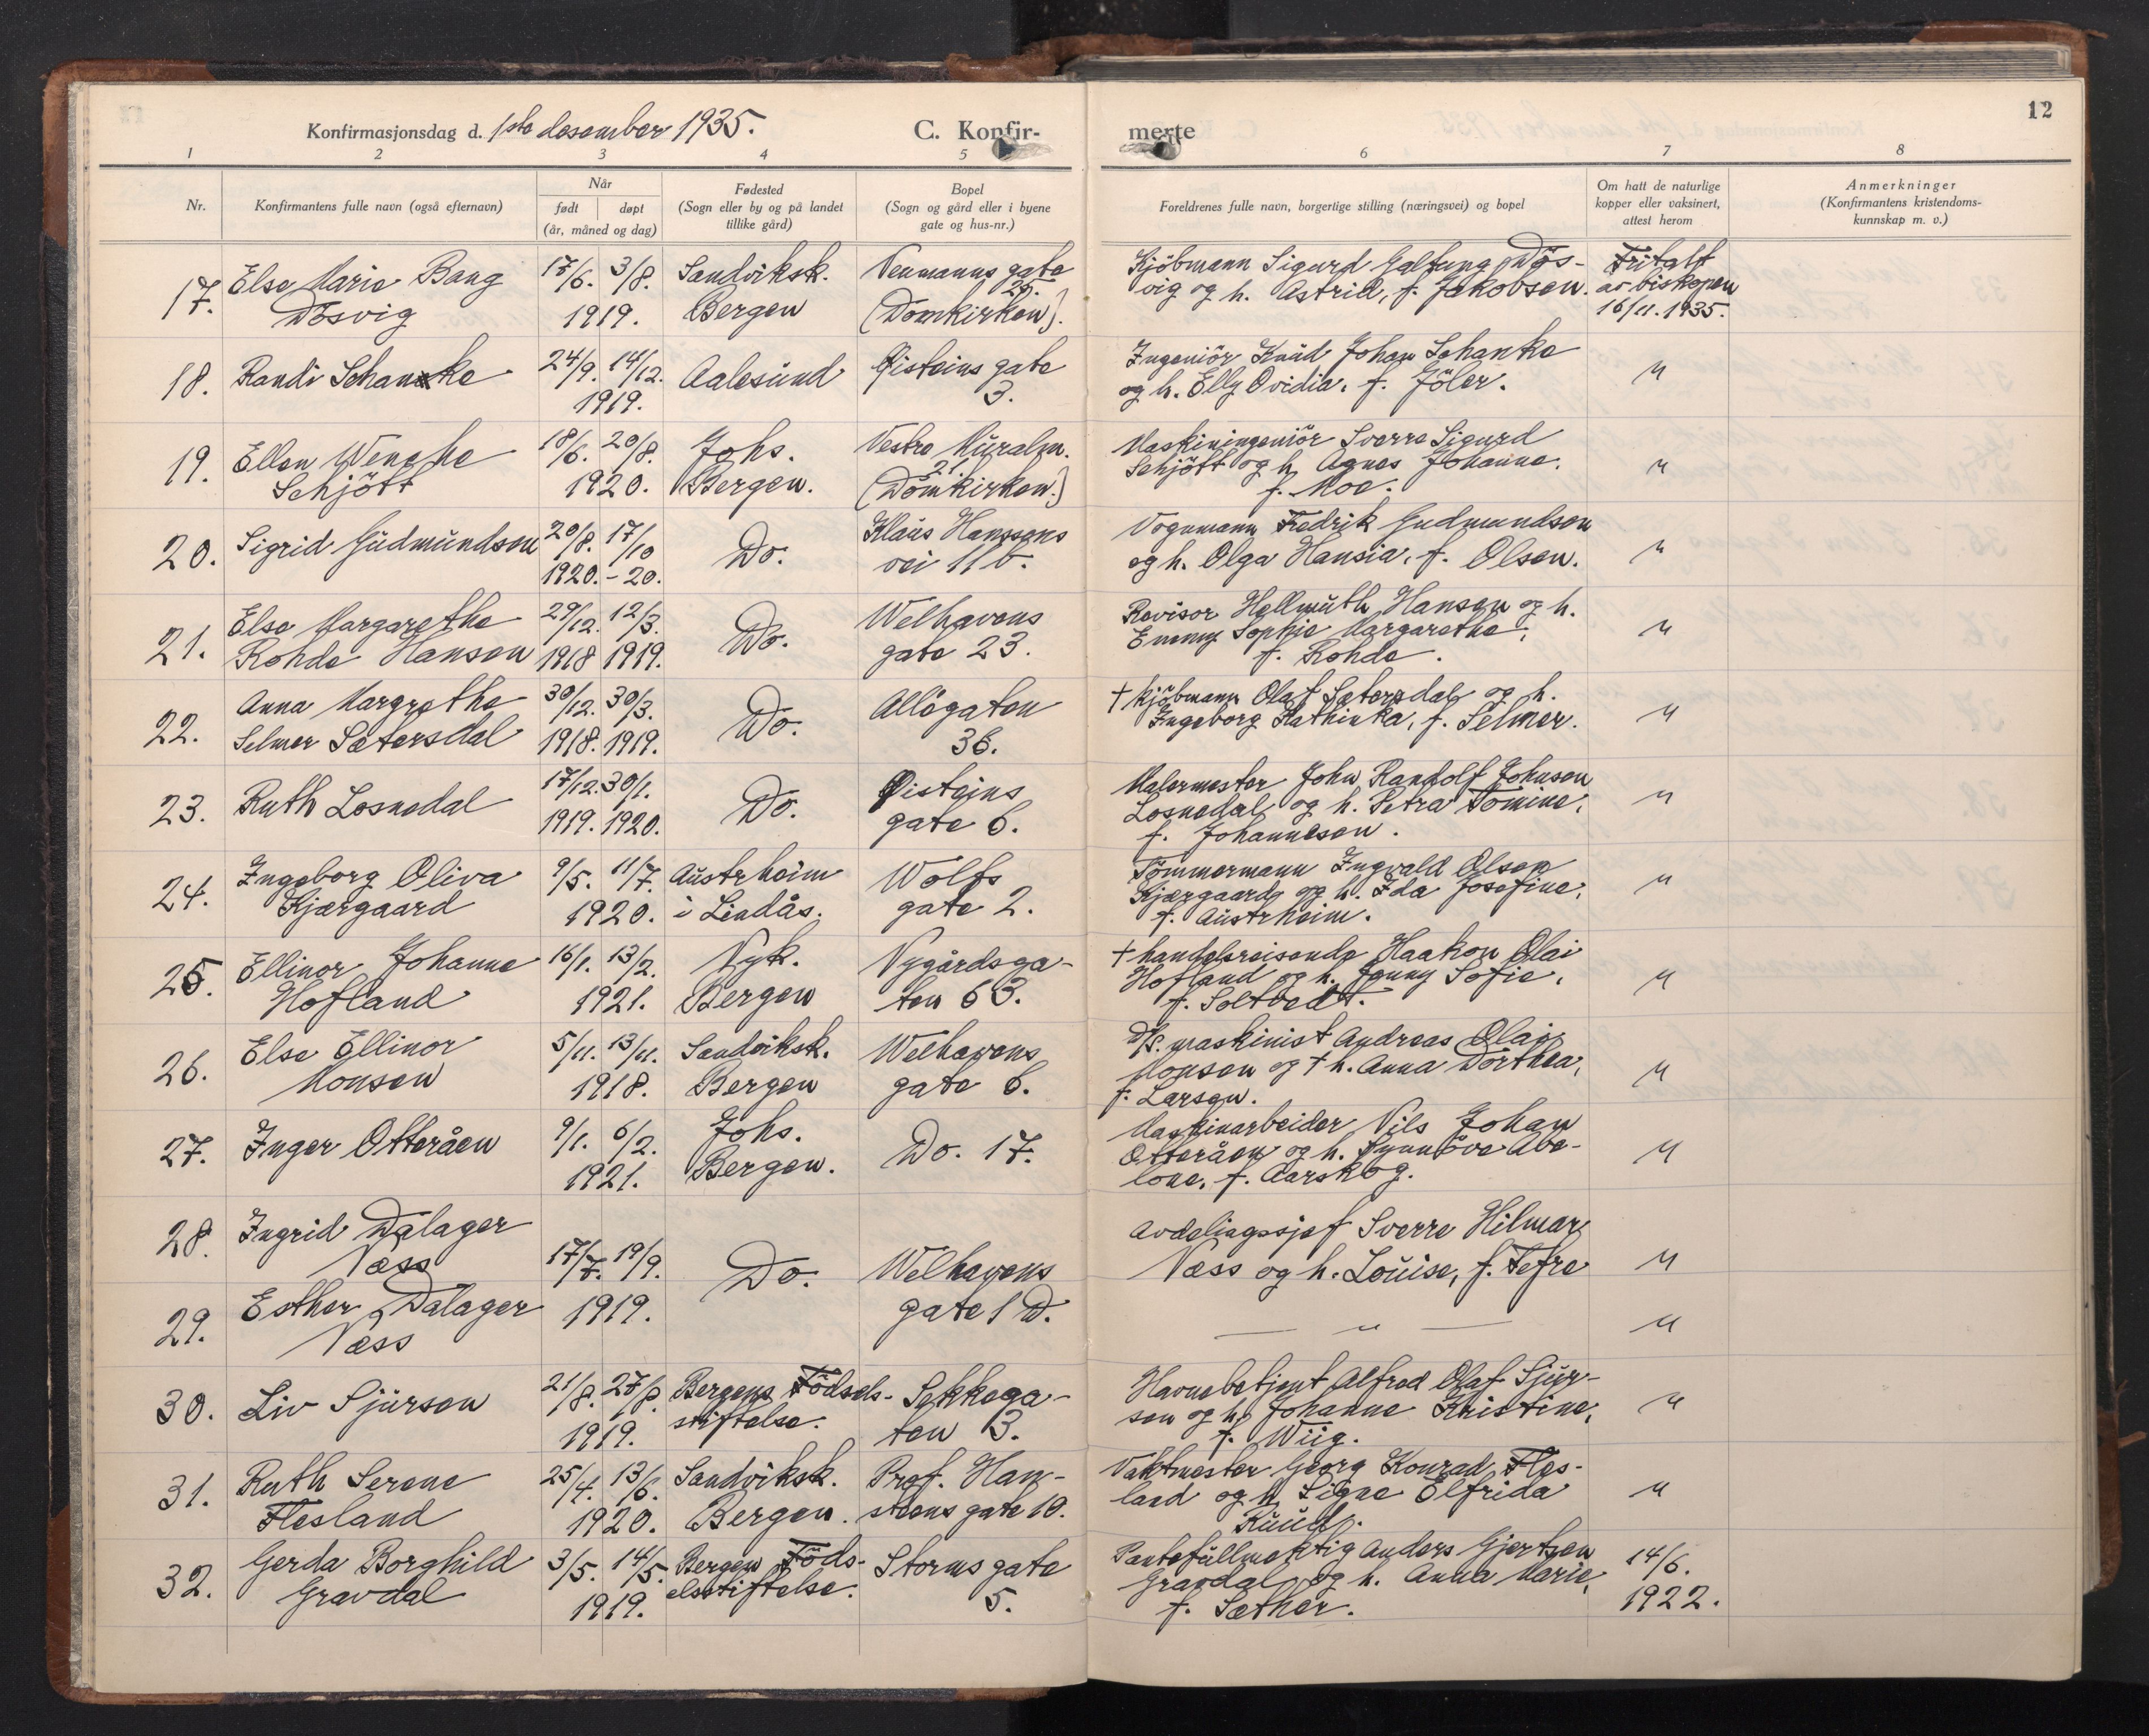 12
Konfirmasjonsdag d. 1ste desember 1935.
C. Konfir-
merte
1 2 3 4 5 6 7 8
Nr.
Konfirmantens fulle navn (også efternavn)
Når
født døpt
(år, måned og dag)
Fødested
(Sogn eller by og på landet
tillike gård)
Bopel
(Sogn og gård eller i byene
gate og hus-nr.)
Foreldrenes fulle navn, borgerlige stilling (næringsvei) og bopel
Om hatt de naturlige
kopper eller vaksinert,
attest herom
Anmerkninger
(Konfirmantens kristendoms-
kunnskap m. v.)
17.
Else Marie Bang
Døsvig
17/6. 3/8.
1919.
Sandviksk.
Bergen
Neumanns gate
25.
(Domkirken).
Kjöbmann Sigurd Galtung Døs-
vig og h. Astrid, f. Jakobsen.
Fritatt
av biskopen
16/11.1935.
18.
Randi Schanke
24/9. 14/12.
1919.
Aalesund
Øisteins gate
3.
Ingeniör Knud Johan Schanke
og h. Elly Ovidia, f. Jöler.
"
19.
Ellen Wenche
Schjött
18/6. 20/8.
1920.
Johs.
Bergen.
Vestre Muralm.
21.
(Domkirken.)
Maskiningeniör Sverre Sigurd
Schjött og h. Agnes Johanne,
f. Moe.
"
20.
Sigrid Gudmundson
20/8. 17/10
1920. - 20.
Do.
Klaus Hanssens
vei 11 b.
Vognmann Fredrik Gudmundson
og h. Olga Hansia, f. Olsen.
"
21.
Else Margarethe
Rohde Hansen
29/12. 12/3.
1918 1919.
Do.
Welhavens
gate 23.
Revisor Hellmuth Hansen og h.
Emmy Sophie Margarethe,
f. Rohde.
"
22.
Anna Margrethe
Selmer Sætersdal
30/12. 30/3.
1918. 1919.
Do.
Allégaten
36.
† Kjöbmann Olaf Sætersdal og h.
Ingeborg Kathinka, f. Selmer.
"
23.
Ruth Losnedal
17/12. 30/1.
1919. 1920.
Do.
Øisteins
gate 6.
Malermester John Randolf Johnson
Losnedal og h. Petra Tomine,
f. Johannesen.
"
24.
Ingeborg Oliva
Kjærgaard
9/5. 11/7.
1920.
Austrheim
i Lindås.
Wolfs
gate 2.
Tömmermann Ingvald Olsen
Kjærgaard og h. Ida Josefine,
f. Austrheim.
"
25.
Ellinor Johanne
Hofland
16/1. 13/2.
1921.
Nyk.
Bergen
Nygårdsga-
ten 63.
† handelsreisende Haakon Olai
Hofland og h. Jenny Sofie,
f. Soltvedt.
"
26.
Else Ellinor
Monsen
5/11. 13/11.
1918.
Sandviksk.
Bergen
Welhavens
gate 6.
D/s. maskinist Andreas Olai
Monsen og † h. Anna Dorthea,
f. Larsen.
"
27.
Inger Otteråen
9/1. 6/2.
1921.
Johs.
Bergen.
Do. 17.
Maskinarbeider Nils Johan
Otteråen og h. Synnöve Abe-
lone, f. Aarskog.
"
28.
Ingrid Dalager
Næss
17/7. 19/9.
1919.
Do.
Welhavens
gate 1 D.
Avdelingssjef Sverre Hilmar
Næss og h. Louise, f. Tefre
"
29.
Esther Dalager
Næss
— " —
"
30.
Liv Sjursen
21/8. 27/8.
1919.
Bergens Födsels-
stiftelse.
Sekkega-
ten 3.
Havnebetjent Alfred Olaf Sjur-
sen og h. Johanne Kristine,
f. Wiig.
"
31.
Ruth Serene
Flesland
25/4. 13/6.
1920.
Sandviksk.
Bergen.
Prof. Han-
steens gate 10.
Vaktmester Georg Konrad Fles-
land og h. Signe Elfrida
Ruud.
"
32.
Gerda Borghild
Gravdal
3/5. 14/5.
1919.
Bergen Föds-
elsstiftelse.
Storms gate
5.
Pantefullmektig Anders Gjertsen
Gravdal og h. Anna Marie,
f. Sæther.
14/6.
1922.